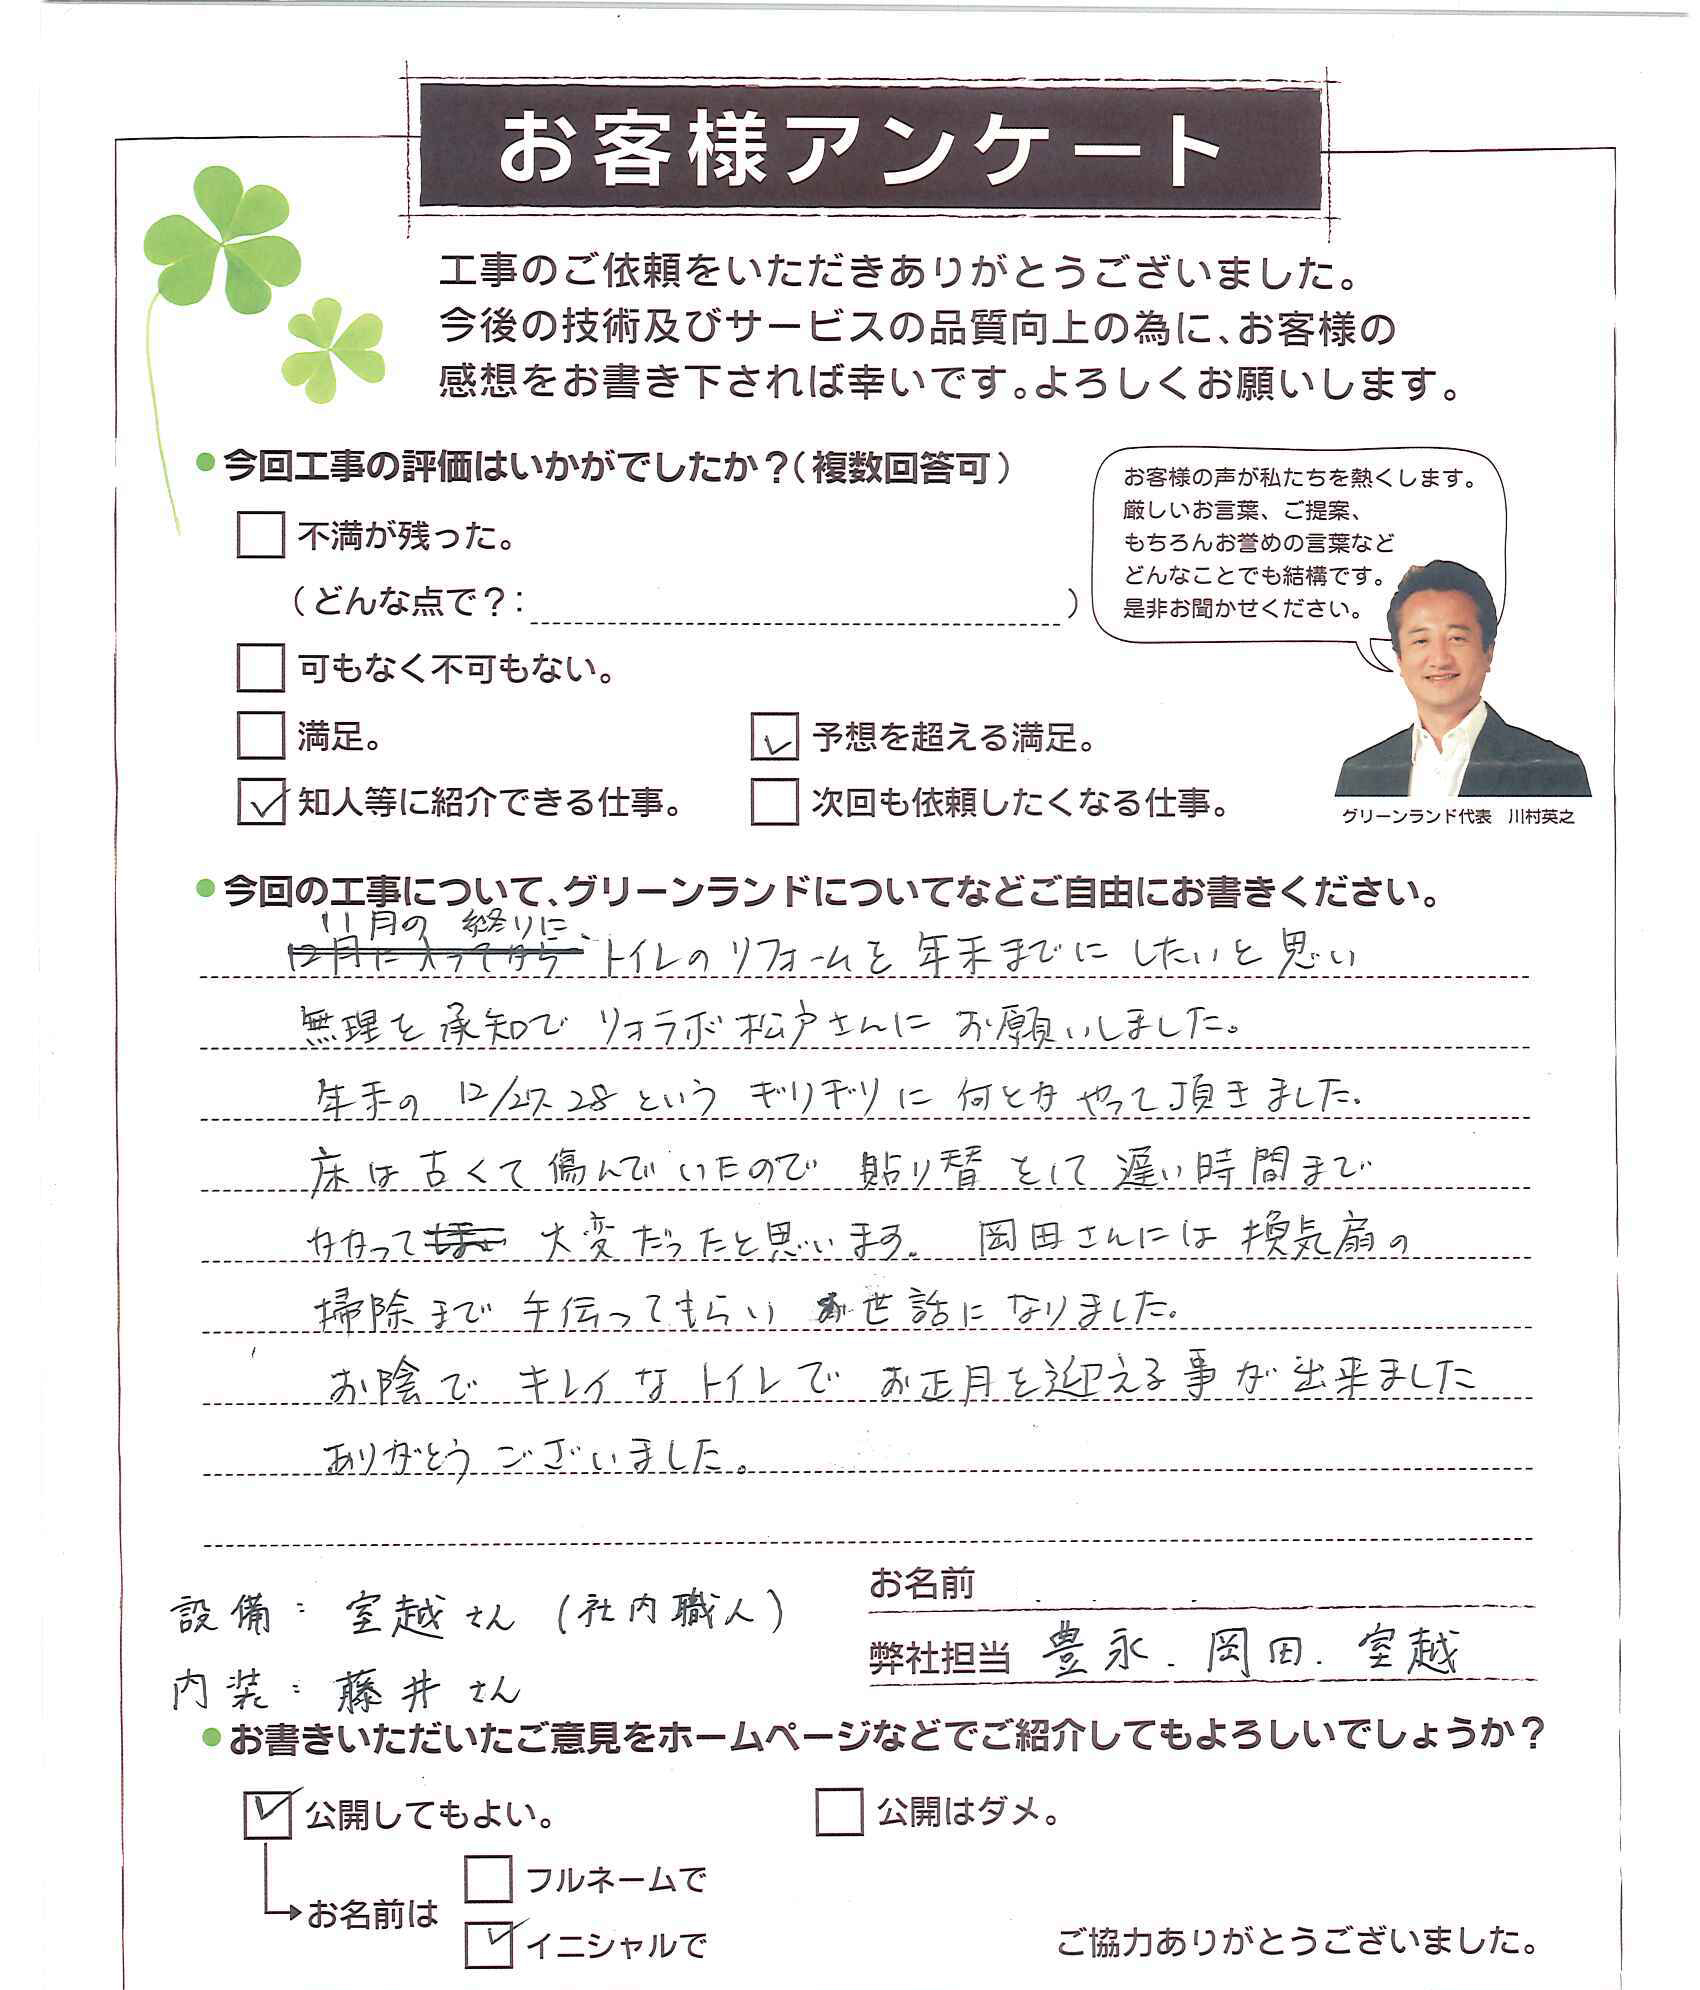 お客様アンケート
工事のご依頼をいただきありがとうございました。
今後の技術及びサービスの品質向上の為に、お客様の
感想をお書き下されば幸いです。よろしくお願いします。
●今回工事の評価はいかがでしたか？（複数回答可）
不満が残った。
（どんな点で？：　）
可もなく不可もない。
満足。
予想を超える満足。
知人等に紹介できる仕事。
次回も依頼したくなる仕事。
お客様の声が私たちを熱くします。
厳しいお言葉、ご提案、
もちろんお誉めの言葉など
どんなことでも結構です。
是非お聞かせください。
グリーンランド代表　川村英之
●今回の工事について、グリーンランドについてなどご自由にお書きください。
11月の 終りに、
12月に入ってから トイレのリフォームを 年末までに したいと 思い
無理を 承知で リオラボ松戸さんに お願いしました。
年末の 12/27. 28 という ギリギリに 何とか やって 頂きました.
床は 古くて 傷んでいたので 貼り替 として 遅い 時間まで
かかって 大変だったと思います。 岡田さんには 換気扇の
掃除まで 手伝ってもらい お世話に なりました。
お陰で キレイな トイレで お正月を迎える事が 出来ました
ありがとう ございました。
設備: 室越さん (社内職人)
内装: 藤井さん
お名前
弊社担当 豊永. 岡田. 室越
●お書きいただいたご意見をホームページなどでご紹介してもよろしいでしょうか？
公開してもよい。
公開はダメ。
お名前は
フルネームで
イニシャルで
ご協力ありがとうございました。